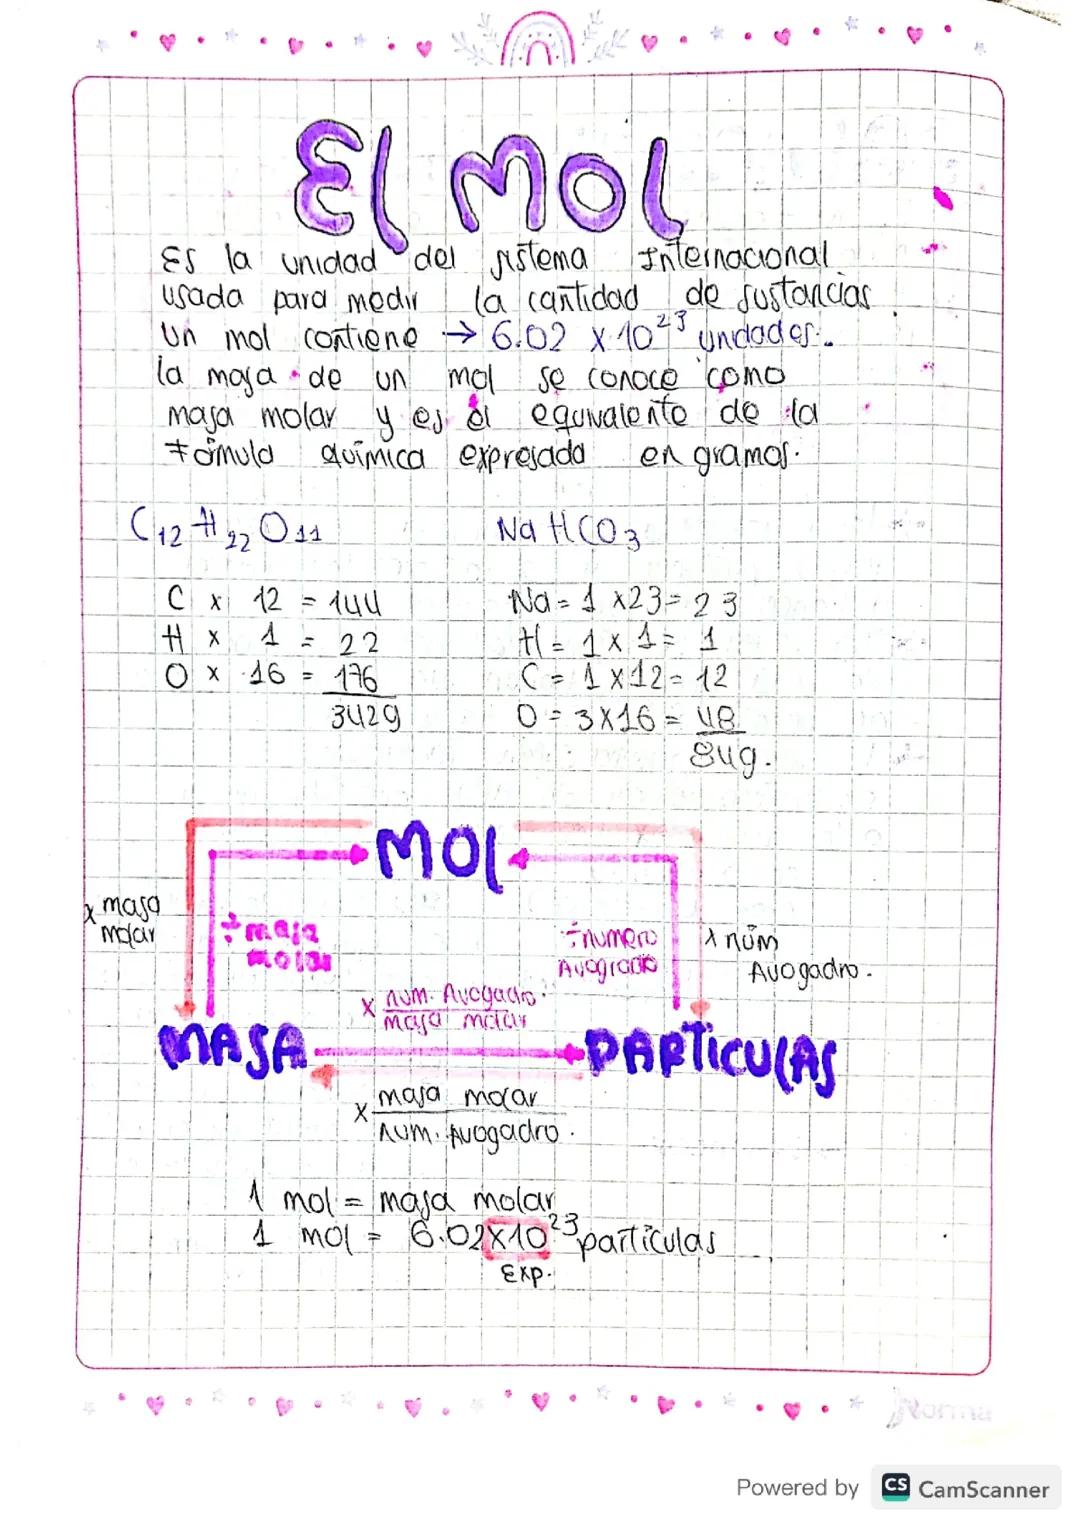 El MOL
Es la unidad del sistema Internacional
usada para medir la cantidad de sustancias
Un mol contiene → 6.02 x 10²³ unidades.
la masa de un mol se conoce como
masa molar y es el equivalente de la
fómula química expresada en gramos.
C₁₂ H₂₂ O₁₁
NaHCO₃
C x 12 = 144
H x 1 = 22
O x 16 = 176
342g
Na = 1 x 23 = 23
H = 1 x 1 = 1
C = 1 x 12 = 12
O = 3 x 16 = 48
84g.
MOL
x masa
molar
÷ masa
molar
÷ numero
Avogrado
x núm
Avogadro.
x num. Avogadro.
masa molar
MASA
PARTICULAS
x masa molar
num. Avogadro.
1 mol = masa molar
1 mol = 6.02x10²³ partículas
Exp.
Norma
Powered by CS CamScanner